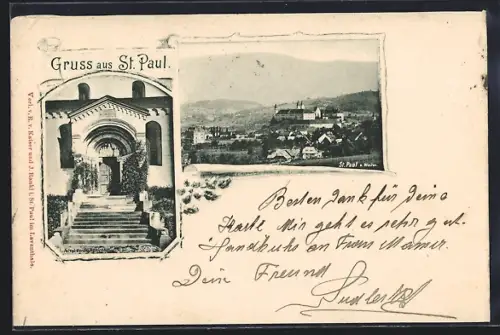 Gruss aus St. Paul.
Verl. v. R. v. Kaiser und J. Hankl i. St. Paul im Lavantthale.
St. Paul v. Westen
Besten Dank für Deine
Karte. Mir geht es sehr gut.
Handkuss an Frau Mamà.
Deine Freund